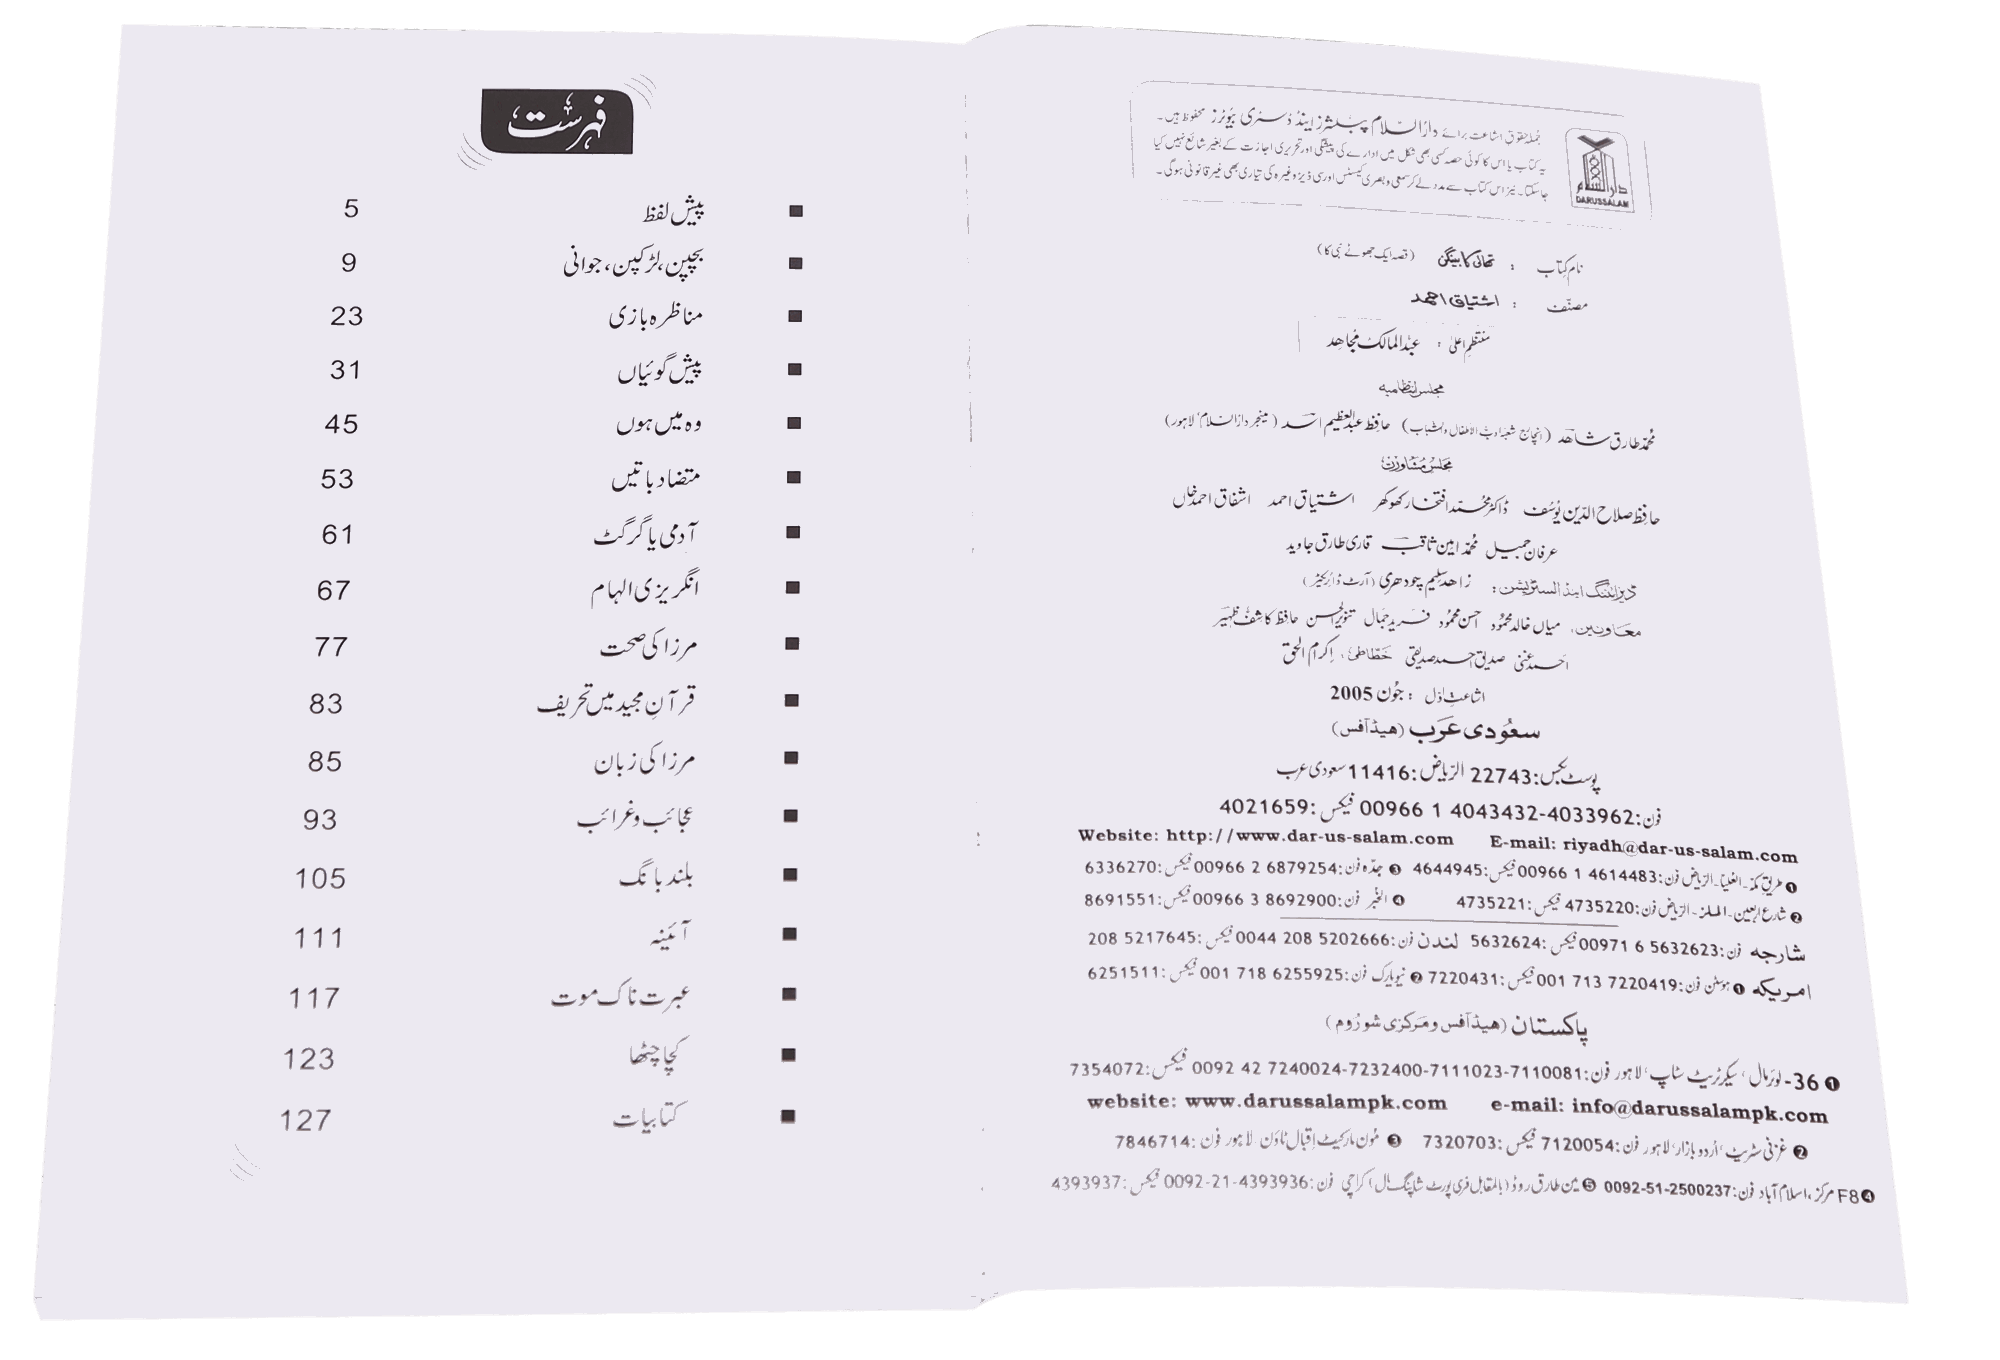 جملہ حقوقِ اشاعت برائے دارالسلام پبلشرز اینڈ ڈسٹری بیوٹرز محفوظ ہیں۔
یہ کتاب یا اس کا کوئی حصہ کسی بھی شکل میں ادارے کی پیشگی اور تحریری اجازت کے بغیر شائع نہیں کیا
جاسکتا۔ نیز اس کتاب سے مدد لے کر سمعی و بصری کیسٹس اور سی ڈیز وغیرہ کی تیاری بھی غیر قانونی ہوگی۔
دارالسلام
DARUSSALAM
نام کتاب : تھالی کا بینگن (قصہ ایک جھوٹے نبی کا)
مصنف : اشتیاق احمد
منتظم اعلیٰ : عبدالمالک مجاھد
مجلس انتظامیہ
محمد طارق شاھد (انچارج شعبہ ادب الاطفال والشباب) حافظ عبدالعظیم اسد (مینجر دارالسلام، لاہور)
مجلس مشاورت
حافظ صلاح الدین یوسف ڈاکٹر محمد افتخار کھوکھر اشتیاق احمد اشفاق احمد خاں
عرفان جمیل محمد امین ثاقب قاری طارق جاوید
ڈیزائننگ اینڈ السٹریشن: زاھد سلیم چودھری (آرٹ ڈائریکٹر)
معاونین: میاں خالد محمود احسن محمود فرید جمال تنویر الحسن حافظ کاشف ظہیر
احمد غنی صدیق احمد صدیقی خطاطی: اکرام الحق
اشاعت اول : جون 2005
سعودی عرب (ھیڈ آفس)
پوسٹ بکس:22743 الریاض:11416 سعودی عرب
فون:00966 1 4043432-4033962 فیکس:4021659
Website: http://www.dar-us-salam.com E-mail: riyadh@dar-us-salam.com
❶ طریق مکہ۔ العلیا۔ الریاض فون:00966 1 4614483 فیکس:4644945 ❸ جدہ فون:00966 2 6879254 فیکس:6336270
❷ شارع اربعین۔ الملز۔ الریاض فون:4735220 فیکس:4735221 ❹ الخبر فون:00966 3 8692900 فیکس:8691551
شارجہ فون:00971 6 5632623 فیکس:5632624 لندن فون:0044 208 5202666 فیکس:208 5217645
امریکہ ❶ ہوسٹن فون:001 713 7220419 فیکس:7220431 ❷ نیویارک فون:001 718 6255925 فیکس:6251511
پاکستان (ھیڈ آفس و مرکزی شوروم)
❶ 36-لوئر مال، سیکرٹریٹ سٹاپ، لاہور فون:0092 42 7240024-7232400-7111023-7110081 فیکس:7354072
website: www.darussalampk.com e-mail: info@darussalampk.com
❷ غزنی سٹریٹ، اردو بازار، لاہور فون:7120054 فیکس:7320703 ❸ مون مارکیٹ اقبال ٹاؤن لاہور فون:7846714
❹ F8 مرکز، اسلام آباد فون:0092-51-2500237 ❺ مین طارق روڈ (بالمقابل فری پورٹ شاپنگ مال) کراچی فون:0092-21-4393936 فیکس:4393937
فہرست
پیش لفظ 5
بچپن، لڑکپن، جوانی 9
مناظرہ بازی 23
پیش گوئیاں 31
وہ میں ہوں 45
متضاد باتیں 53
آدمی یا گرگٹ 61
انگریزی الہام 67
مرزا کی صحت 77
قرآنِ مجید میں تحریف 83
مرزا کی زبان 85
عجائب و غرائب 93
بلند بانگ 105
آئینہ 111
عبرت ناک موت 117
کچا چٹھا 123
کتابیات 127